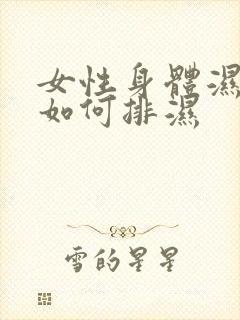 女性身體濕
如何排濕
雪的星星